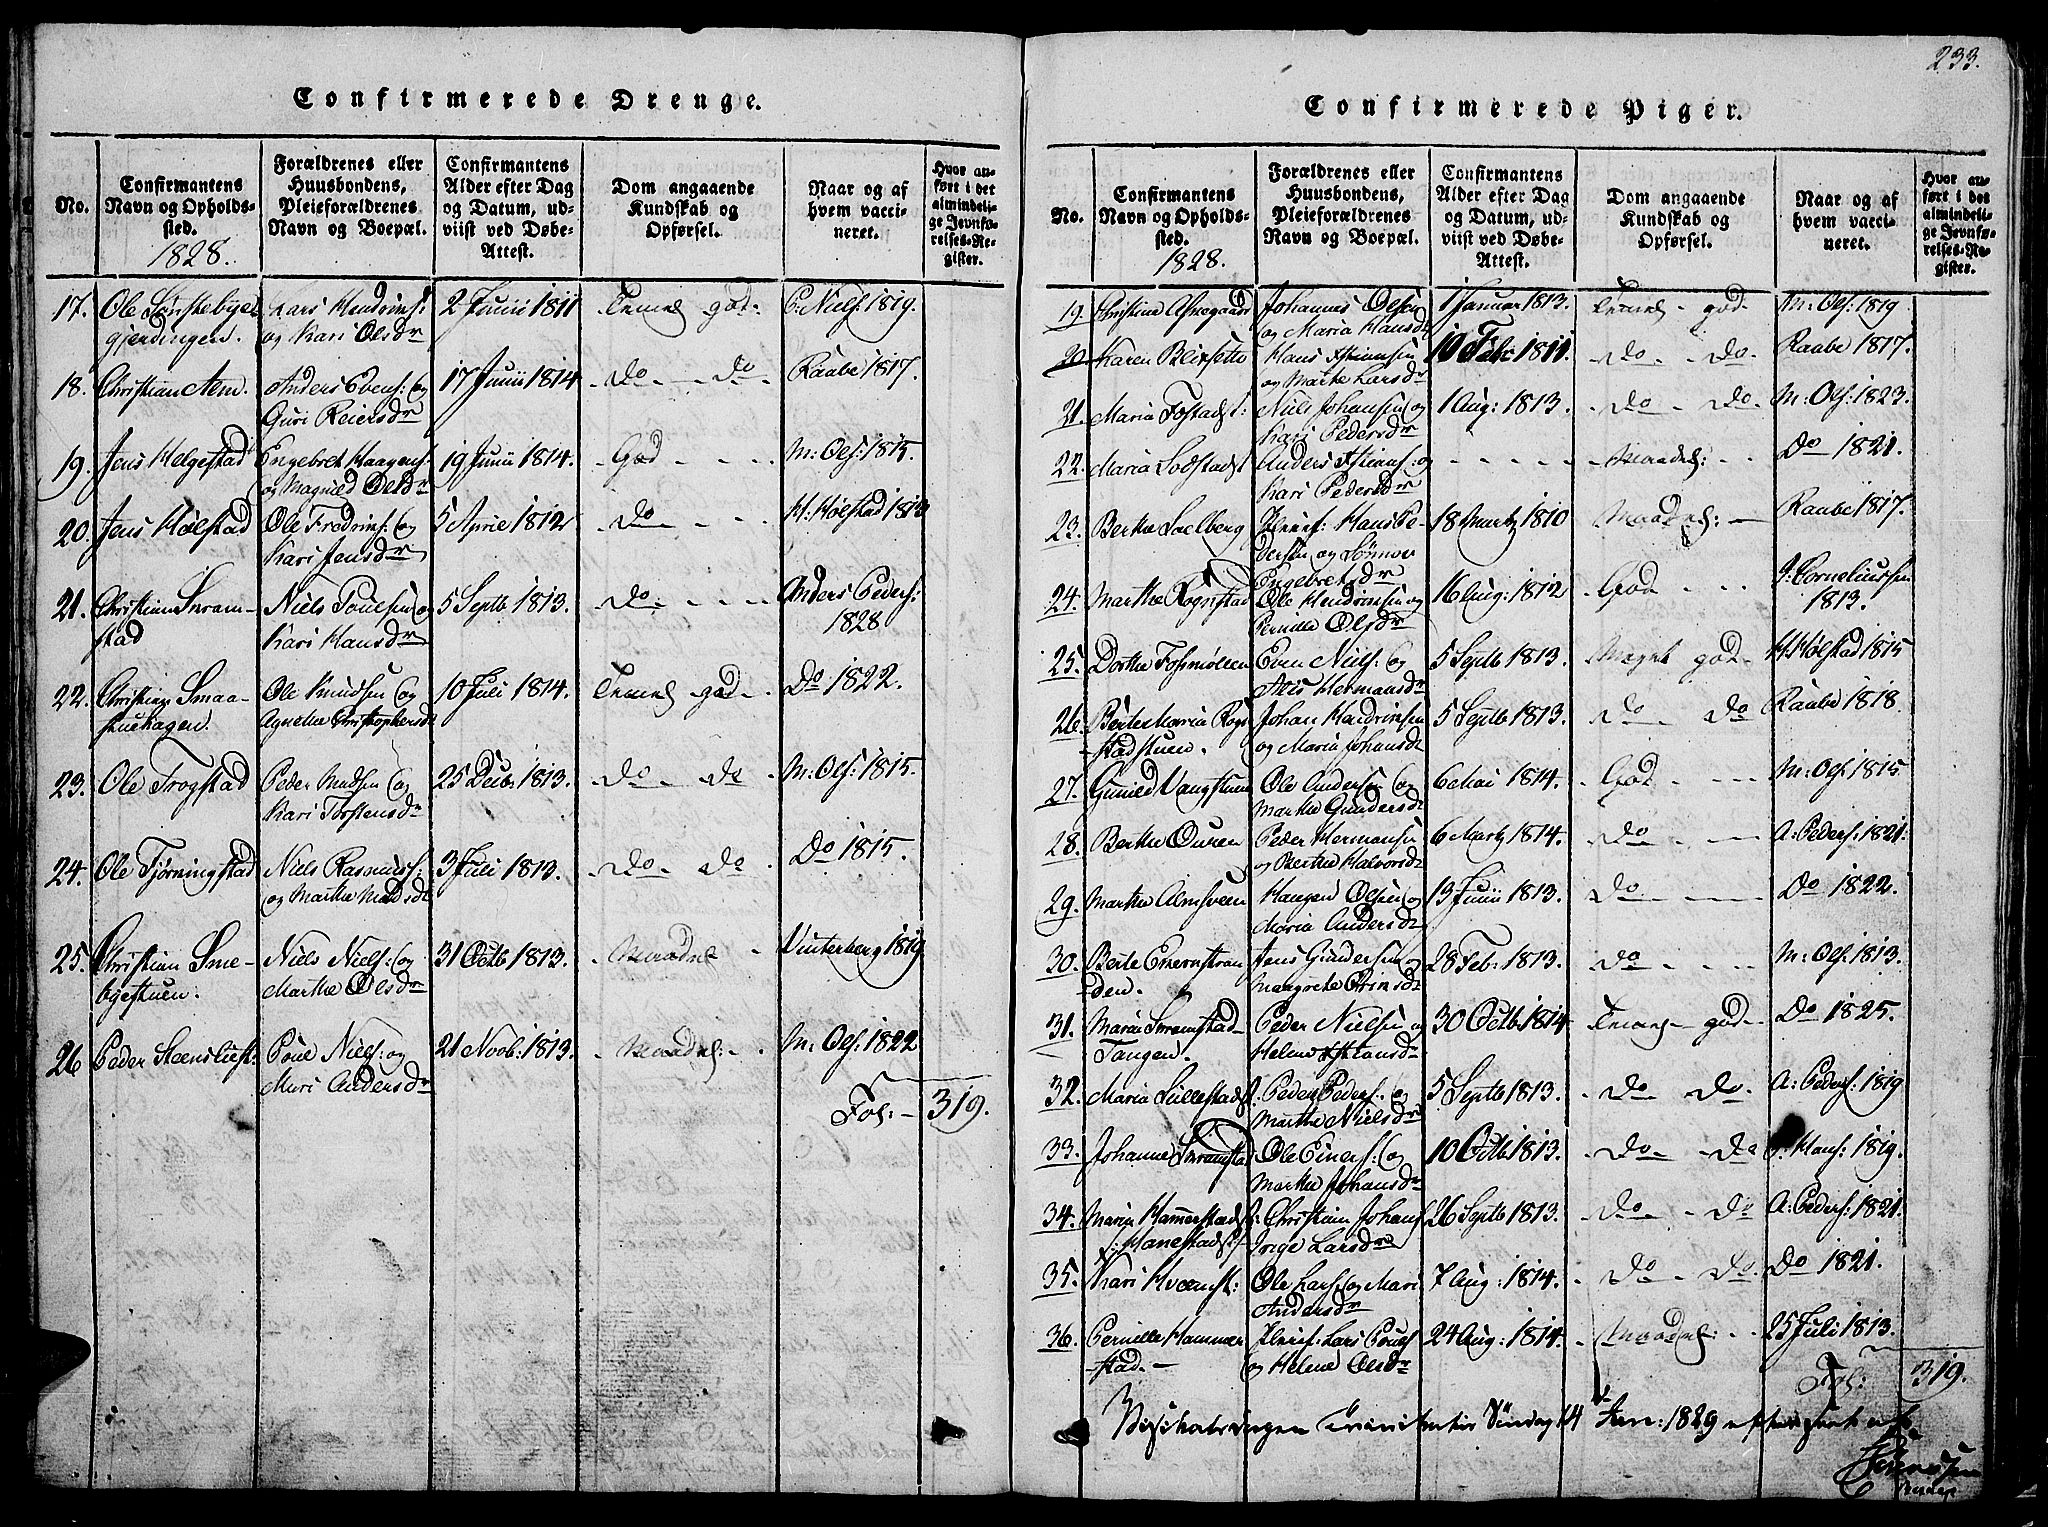 233.
Confirmerede Drenge.
No.
Confirmantens
Navn og Opholds-
sted.
1828.
Forældrenes eller
Huusbondens,
Pleieforældrenes
Navn og Boepæl.
Confirmantens
Alder efter Dag
og Datum, ud-
viist ved Døbe-
Attest.
Dom angaaende
Kundskab og
Opførsel.
Naar og af
hvem vacci-
neret.
Hvor an-
ført i det
almindeli-
ge Jevnfø-
relses-Re-
gister.
17. Ole
gjerdingen.
Lars Hendrichs:
og Kari Olsdr
2 Junii 1811
god
P: Niels: 1819.
18. Christian Aem.
Anders Evens: og
Guri Reiersdr
17 Junii 1814
Do Do
Raabe 1817.
19. Jens Helgestad
Engebret Haagens:
og Magnild Olsdr
19 Junii 1814.
God
M: Ols: 1815.
20. Jens Hølstad
Ole Fredrichs: og
Kari Jensdr
5 April 1812
Do
H. Hølstad 1813
21. Christian Skram-
stad
Niels Poulsen og
Kari Hansdr
5 Septb 1813.
Do
Anders Peders:
1828
22. Christian Smaa-
stuehagen.
Ole Knudsen og
Agnethe Christophersdr
10 Juli 1814.
god
Do 1822.
23. Ole Trogstad
Peder Madsen og
Kari Torstensdr
25 Decb 1813.
Do Do
M: Ols: 1815.
24. Ole Tjørningstad
Niels Rasmuss:
og Marthe Madsdr
3 Juli 1813.
Do Do
Do 1815.
25. Christian Sme-
bgestuen.
Niels Niels: og
Marthe Olsdr
31 Octb 1813.
Vinterberg 1819
26 Peder Steensliest:
Poul Niels: og
Mari Andersdr
21 Novb: 1813.
M: Ols: 1822
Fol: 319.
Confirmerede Piger.
No.
Confirmantens
Navn og Opholds-
sted.
1828.
Forældrenes eller
Huusbondens,
Pleieforældrenes
Navn og Boepæl.
Confirmantens
Alder efter Dag
og Datum, ud-
viist ved Døbe-
Attest.
Dom angaaende
Kundskab og
Opførsel.
Naar og af
hvem vacci-
neret.
Hvor an-
ført i det
almindeli-
ge Jevnfø-
relses-Re-
gister.
19. Christine
Johannes Olsen
og Maria Hansdr
1 Januar 1813.
god
M: Ols: 1819
20. Karen
Hans
og Marte Larsdr
10 Feb: 1811.
Do Do
Raabe 1817.
21. Maria Fostadst:
Niels Johansen og
Kari Pedersdr
1 Aug: 1813.
Do Do
M: Ols: 1823.
22. Maria
Anders
Kari Pedersdr
Do 1821.
23. Berthe Soelberg
Pleief: Hans Pe-
dersen og Sønnov
Engebretsdr
18 Martz 1810
Raabe 1817.
24. Marthe Rognstad
Ole Hendrichsen og
Pernille Olsdr
16 Aug: 1812
God
J: Corneliussen
1813.
25. Dorthe Fosmøllen
Even Niels: og
Hermansdr
5 Septb 1813.
Meget god
H. Hølstad 1815
26. Berte Maria Rogn-
stadstuen.
Johan Hendrichsen
og Maria Johansdr
5 Septb 1813.
Do Do
Raabe 1818.
27. Gunild Vangstuen
Ole Andersen og
Marthe Gundersdr
6 Mai 1814.
God
M: Ols: 1815
28. Berthe
Peder Hermansen
og Berthe Halvorsdr
6 Martz 1814.
Do
A: Peders: 1821.
29. Marthe Almsveen
Haagen Olsen og
Maria Andersdr
13 Junii 1813.
Do
Do 1822.
30. Berte
den.
Jens Gundersen og
Margrete
28 Feb: 1813.
Do
M: Ols: 1813.
31. Maria Skramstad-
Tangen.
Peder Nielsen og
Helene
30 Octb 1814
god
Do 1825.
32. Maria Lillestadst.
Peder Peders: og
Marthe Nielsdr
5 Septb 1813.
Do Do
A: Peders: 1819
33. Johanne Skramstad
Ole Einers: og
Marthe Johansdr
10 Octb 1813.
Do Do
Hans: 1819.
34. Maria Hamerstadst:
Christian Johans
Inge Larsdr
26 Septb 1813.
Do Do
A: Peders: 1821.
35. Kari
Ole Lars: og Mari
Andersdr
7 Aug: 1814.
Do Do
Do 1821.
36. Pernille Hammer-
stad.
Pleief: Lars Pouls
og Helene Olsdr
24 Aug: 1814.
25 Juli 1813.
Fol: 319.
Søndag 14 Jun: 1829